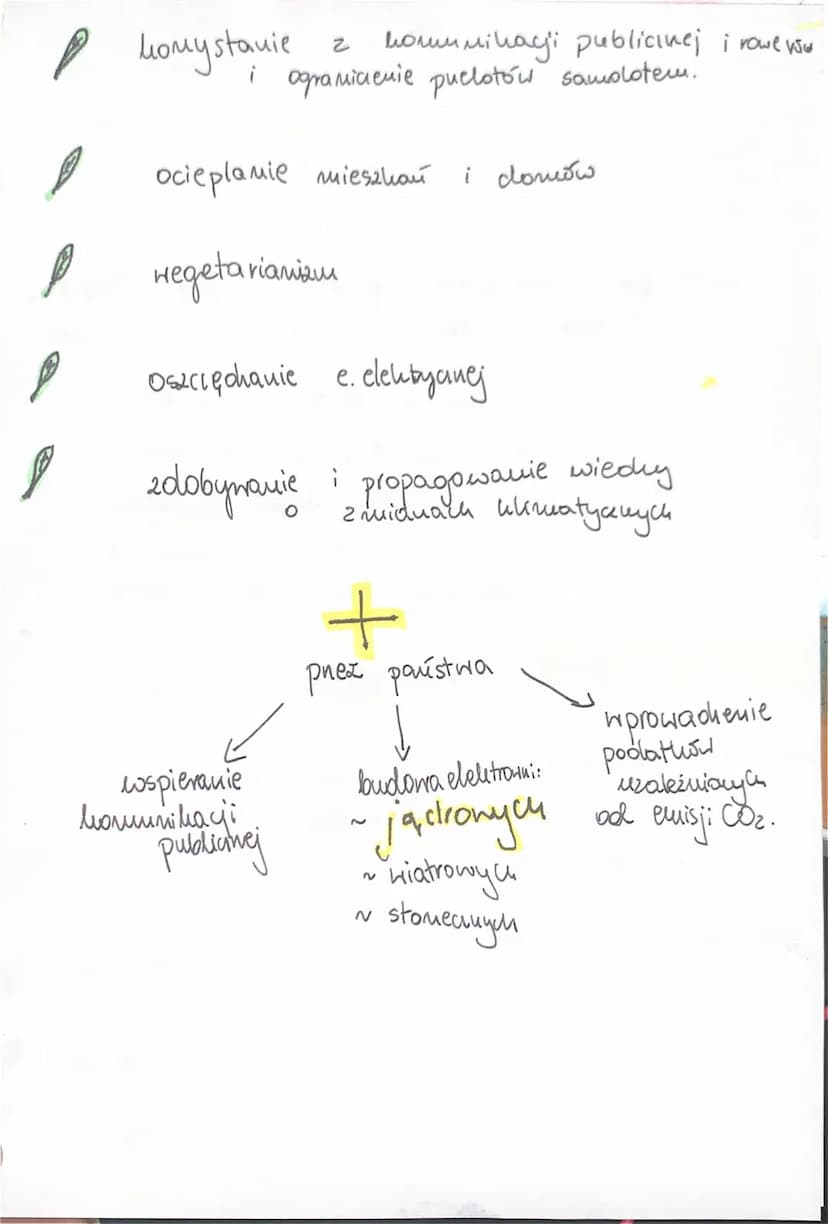 korzystanie z komunikacji publicznej i rowerów
i ograniczenie przelotów samolotem.
ocieplanie mieszkań i domów
wegetarianizm
oszczędzanie e. elektrycznej
zdobywanie i propagowanie wiedzy
o zmianach klimatycznych
przez państwa
wspieranie
komunikacji
publicznej
budowa elektrowni:
~ jądrowych
~ wiatrowych
~ słonecznych
wprowadzenie
podatków
uzależnionych
od emisji CO₂.